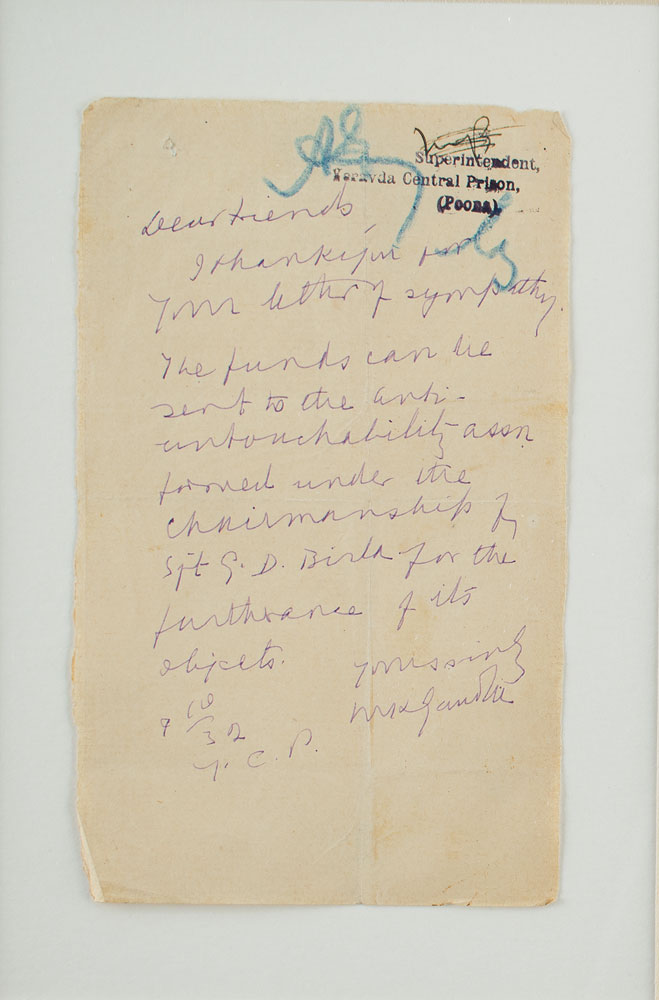 Superintendent,
Yeravda Central Prison,
(Poona).
Dear friends,
I thank you for
your letter of sympathy.
The funds can be
sent to the anti-
untouchability assn
formed under the
chairmanship of
Sjt G. D. Birla for the
furtherance of its
objects.
yours sincly
MKGandhi
7 10/32
Y. C. P.